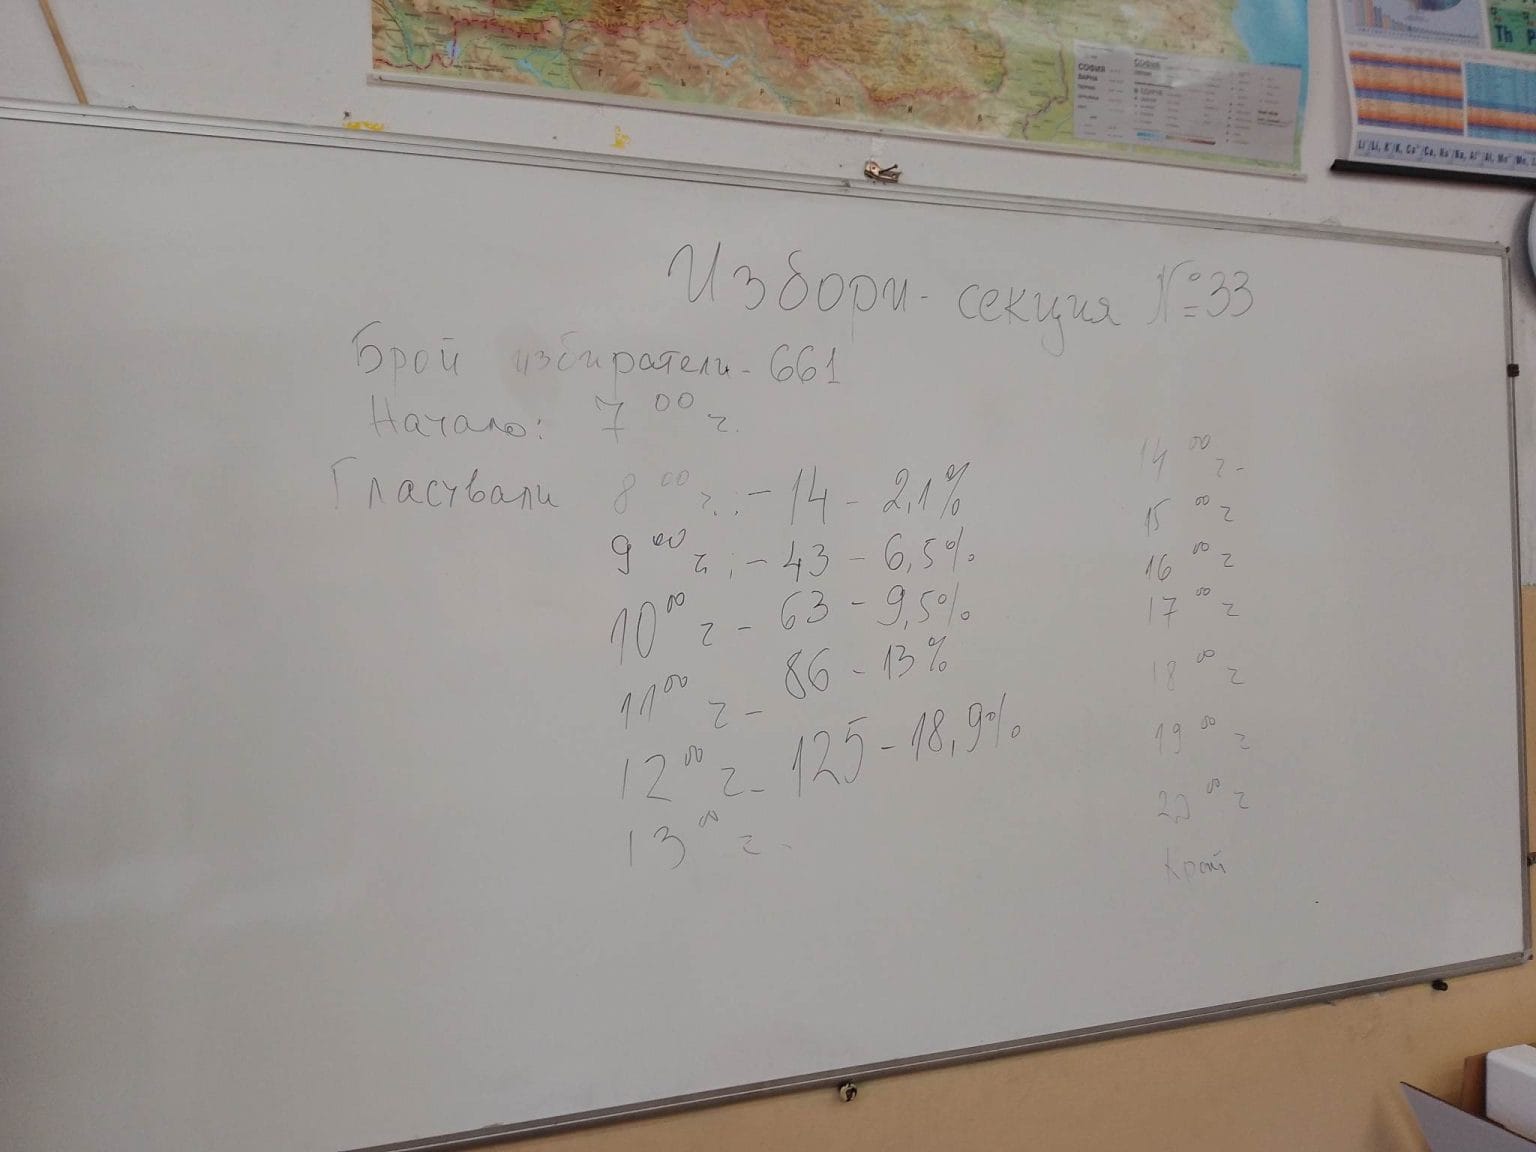 Избори - секция №33
Брой избиратели - 661
Начало: 7 00 ч.
Гласували 8 00 ч. : - 14 - 2,1%
9 00 ч. : - 43 - 6,5%
10 00 ч - 63 - 9,5%
11 00 ч - 86 - 13%
12 00 ч - 125 - 18,9%
13 00 ч -
14 00 ч -
15 00 ч
16 00 ч
17 00 ч
18 00 ч
19 00 ч
20 00 ч
Край
СОФИЯ
ВАРНА
Th